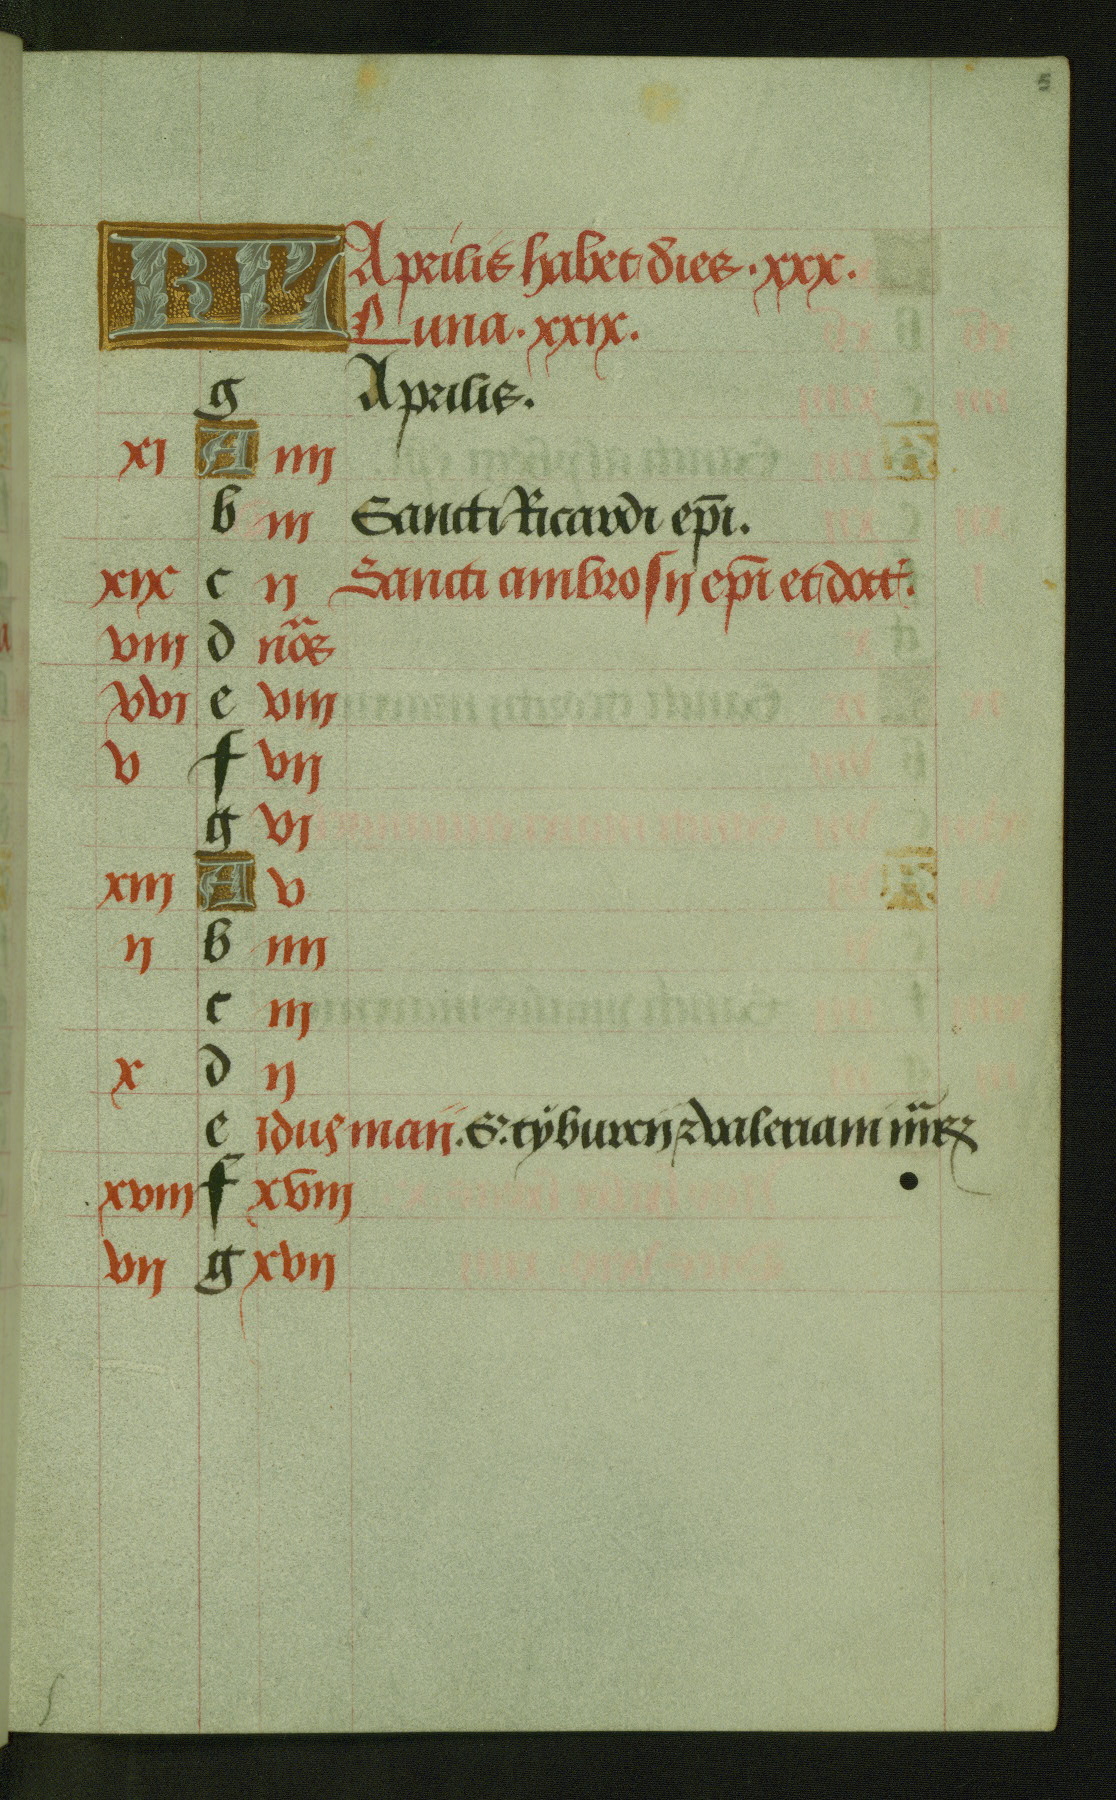 KL Aprilis habet dies · xxx ·
Luna · xxix ·
g Aprilis .
xi A iiij
b iij Sancti Ricardi ep̄i .
xix c ij Sancti ambrosij ep̄i et doct .
viij d nōs
vvi e viij
v f vij
g vi
xiij A v
ij b iiij
c iij
x d ij
e idus maij . S. tyburcij ⁊ valeriani
xviij f xviij
vij g xvij